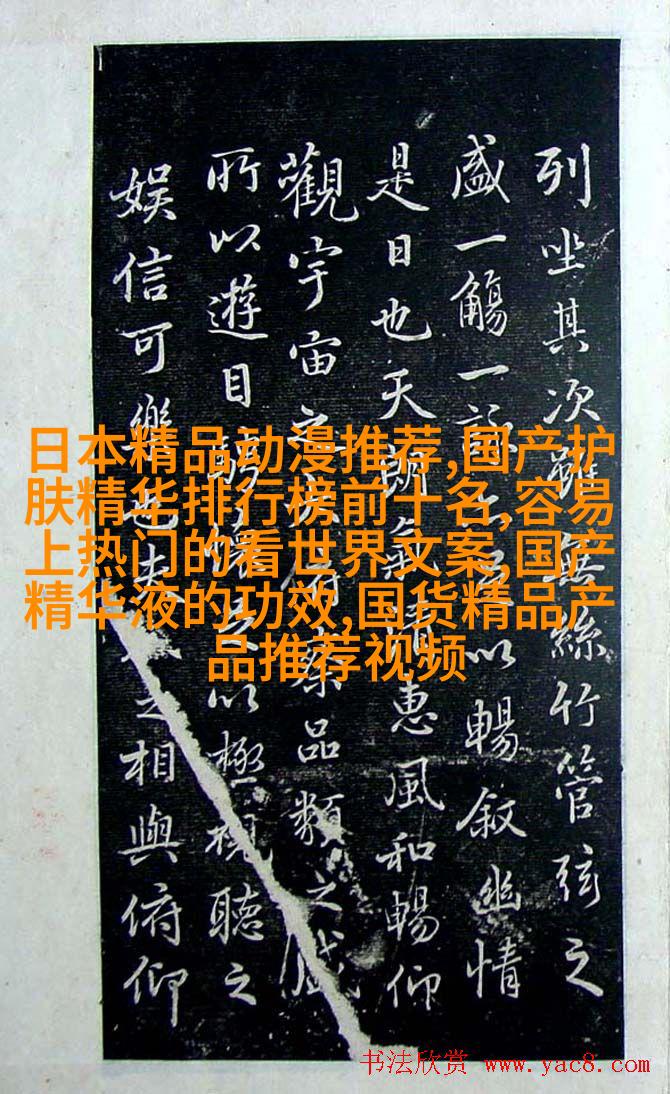 列坐其次雖無絲竹管弦之
盛一觴一詠以暢叙幽情
是日也天朗氣清惠風和暢仰
觀宇宙之察品類之盛
所以遊目騁懷足以極視聽之
娱信可樂也夫之相與俯仰
日本精品动漫推荐,国产护
肤精华排行榜前十名,容易
上热门的看世界文案,国产
精华液的功效,国货精品产
品推荐视频
书法欣赏 www.yac8.com